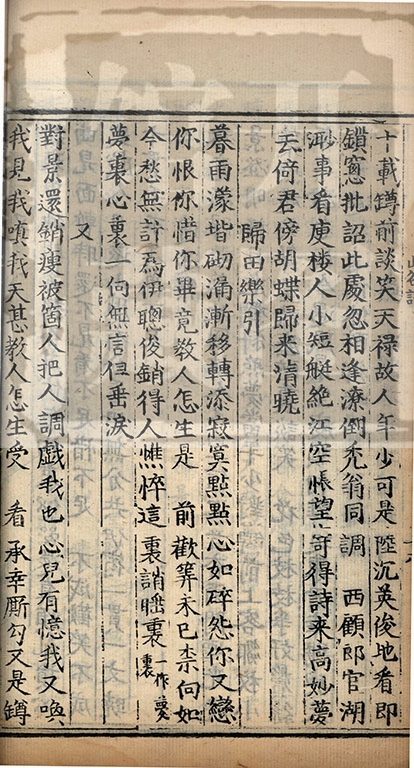 十載罇前談笑天禄故人年少可是陸沉英俊地看即
鎖窻批詔此處忽相逢潦倒禿翁同調　西顧郎官湖
渺事看庾樓人小短艇絶江空悵望寄得詩来高妙夢
去倚君傍胡蝶歸来清曉
歸田樂引
暮雨濛堦砌漏漸移轉添寂寞點點心如碎怨你又戀
你恨你惜你畢竟教人怎生是　前歡筭未已柰向如
今愁無計為伊聰俊銷得人憔悴這裏誚睡裏一作夢裏
夢裏心裏一向無言但垂淚
又
對景還銷瘦被箇人把人調戲我也心兒有憶我又喚
我見我嗔我天甚教人怎生受　看承幸厮勾又是罇